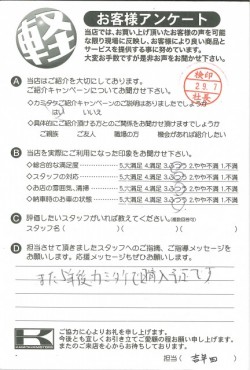 軽
お客様アンケート
当店では、お買い上げ頂いたお客様の声を可能
な限り現場に反映し、お客様により良い商品と
サービスを提供する事に努めています。
大変お手数ですが是非お声をお聞かせ下さい。
A 当店はご紹介を大切にしております。
ご紹介キャンペーンについてお聞かせ下さい。
◇カミタケご紹介キャンペーンのご説明はありましたでしょうか
はい いいえ
◇具体的にご紹介頂ける方とのご関係をお聞かせ頂けますでしょうか
ご親族 ご友人 職場の方 機会があれば紹介したい
検印
2.9.7
社長
B 当店を実際にご利用になった印象をお聞かせ下さい。
◇総合的な満足度 5.大満足 4.満足 3.普通 2.やや不満 1.不満
◇スタッフの対応 5.大満足 4.満足 3.普通 2.やや不満 1.不満
◇お店の雰囲気、清掃 5.大満足 4.満足 3.普通 2.やや不満 1.不満
◇納車時のお車の状態 5.大満足 4.満足 3.普通 2.やや不満 1.不満
C 評価したいスタッフがいれば教えてください。(複数回答可)
スタッフ名( )( )( )
D 担当させて頂きましたスタッフへのご指摘、ご指導メッセージを
お願いします。応援メッセージもぜひお願いします。
また5年後カミタケで購入予定です
K
ご協力に心よりお礼を申し上げます。
今後とも宜しくお引き立てご愛顧の程お願い申し上げます。
またのご来店を心からお待ちしております。
担当(吉年田)